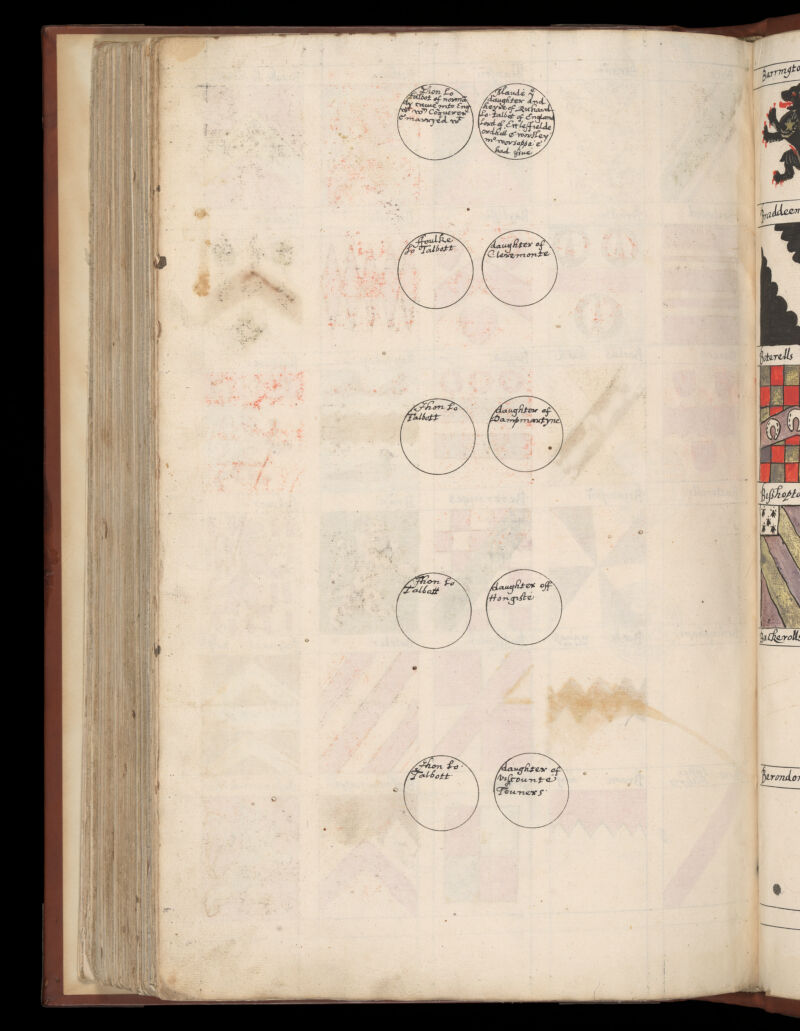 Jhon Lo
Talbot of norma
dy came into Eng
wt Wm Coquerer
& marryed wt
Maude ye
daughter and
heyre of Richard
Lo. talbot of England
Lord of Ecclesfielde
&
had yssue
ffoulke
Lo Talbott
daughter of
Cleremonte
Jhon Lo
Talbott
daughter of
Dampmartyne
Jhon Lo
Talbott
daughter off
Hongiste
Jhon Lo
Talbott
daughter of
viscounte
Touners
Barringto
Braddeen
Boterells
Bisshopto
Backerolls
Berendon